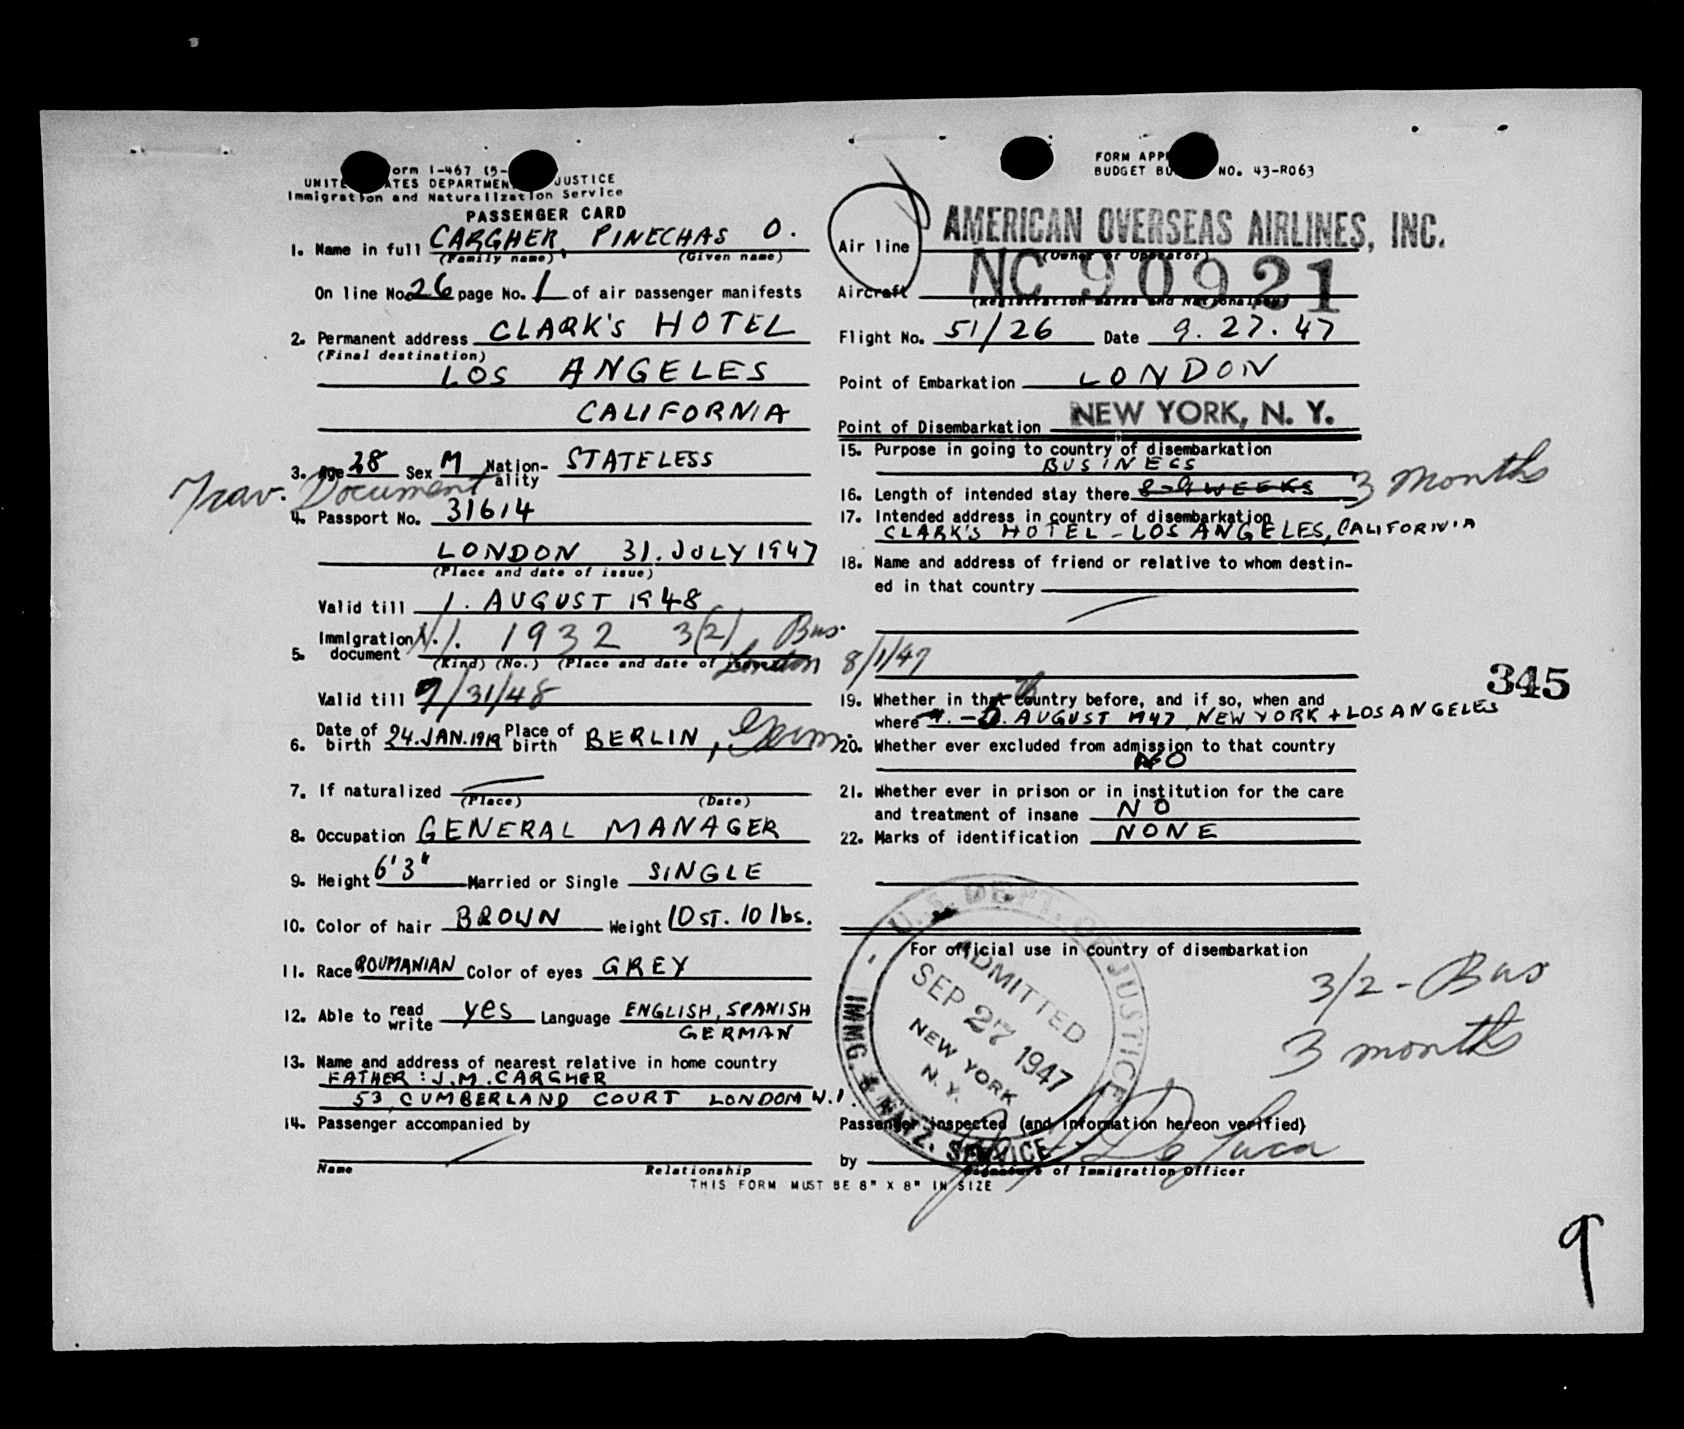 Form I-467 (5-
UNITE ATES DEPARTMEN JUSTICE
Immigration and Naturalization Service
PASSENGER CARD
1. Name in full CARGHER, PINECHAS O.
(Family name) (Given name)
On line No. 26 page No. 1 of air passenger manifests
2. Permanent address CLARK'S HOTEL
(Final destination)
LOS ANGELES
CALIFORNIA
3. Age 28 Sex M Nation-ality STATELESS
Trav. Document
4. Passport No. 31614
LONDON 31. JULY 1947
(Place and date of issue)
Valid till 1. AUGUST 1948
5. Immigration document N.I. 1932 3(2) Bus.
(Kind) (No.) (Place and date of London 8/1/47
Valid till 7/31/48
6. Date of birth 24.JAN.1919 Place of birth BERLIN, Germ.
7. If naturalized
(Place) (Date)
8. Occupation GENERAL MANAGER
9. Height 6'3" Married or Single SINGLE
10. Color of hair BROWN Weight 10 ST. 10 lbs.
11. Race ROUMANIAN Color of eyes GREY
12. Able to read write yes Language ENGLISH, SPANISH
GERMAN
13. Name and address of nearest relative in home country
FATHER: J.M. CARGHER
53, CUMBERLAND COURT LONDON W.1.
14. Passenger accompanied by
Name Relationship
THIS FORM MUST BE 8" X 8" IN SIZE
FORM APP
BUDGET BU NO. 43-R063
Air line AMERICAN OVERSEAS AIRLINES, INC.
(Owner or Operator)
Aircraft NC 90921
(Registration marks and Nationality)
Flight No. 51/26 Date 9.27.47
Point of Embarkation LONDON
Point of Disembarkation NEW YORK, N. Y.
15. Purpose in going to country of disembarkation
BUSINESS
16. Length of intended stay there 8-9 WEEKS 3 months
17. Intended address in country of disembarkation
CLARK'S HOTEL - LOS ANGELES, CALIFORNIA
18. Name and address of friend or relative to whom destin-
ed in that country
345
19. Whether in that country before, and if so, when and
where AUGUST 1947, NEW YORK + LOS ANGELES
20. Whether ever excluded from admission to that country
NO
21. Whether ever in prison or in institution for the care
and treatment of insane NO
22. Marks of identification NONE
For official use in country of disembarkation
U.S. DEPT. OF JUSTICE
IMMIG. & NATZ. SERVICE
ADMITTED
SEP 27 1947
NEW YORK
N. Y.
3/2 - Bus
3 months
Passenger inspected (and information hereon verified)
by De Luca
Signature of Immigration Officer
9